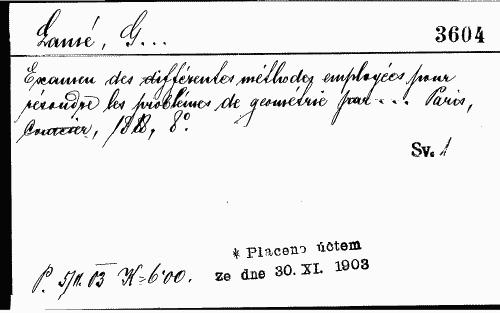 Lamé, G... 3604
Examen des différentes méthodes employées pour
résoudre les problèmes de geométrie par... Paris,
Courcier, 1818, 8°.
Sv. 1
* Placeno účtem
P. 5/11. 03 K = 6·00. ze dne 30. XI. 1903